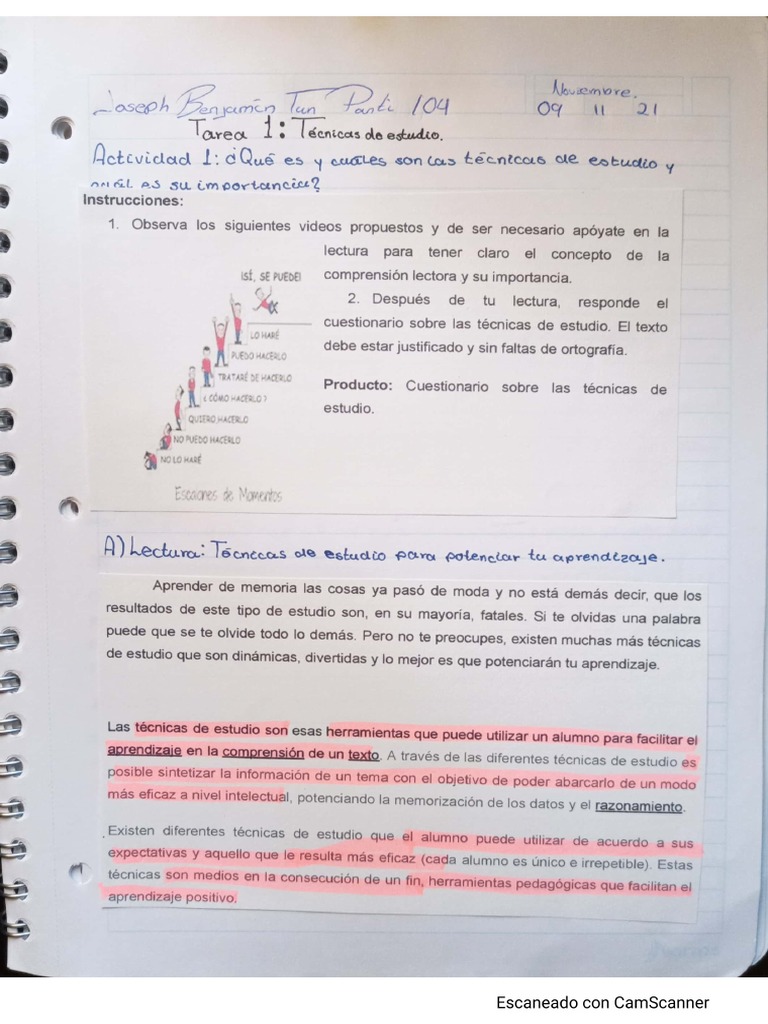 Joseph Benjamín Tun Panti 104
Noviembre.
09 11 21
Tarea 1: Técnicas de estudio.
Actividad 1: ¿Qué es y cuáles son las técnicas de estudio y
cuál es su importancia?
Instrucciones:
1. Observa los siguientes videos propuestos y de ser necesario apóyate en la
lectura para tener claro el concepto de la
comprensión lectora y su importancia.
2. Después de tu lectura, responde el
cuestionario sobre las técnicas de estudio. El texto
debe estar justificado y sin faltas de ortografía.
Producto: Cuestionario sobre las técnicas de
estudio.
¡SÍ, SE PUEDE!
LO HARÉ
PUEDO HACERLO
TRATARÉ DE HACERLO
¿CÓMO HACERLO?
QUIERO HACERLO
NO PUEDO HACERLO
NO LO HARÉ
Escalones de Momentos
A) Lectura: Técnicas de estudio para potenciar tu aprendizaje.
Aprender de memoria las cosas ya pasó de moda y no está demás decir, que los
resultados de este tipo de estudio son, en su mayoría, fatales. Si te olvidas una palabra
puede que se te olvide todo lo demás. Pero no te preocupes, existen muchas más técnicas
de estudio que son dinámicas, divertidas y lo mejor es que potenciarán tu aprendizaje.
Las técnicas de estudio son esas herramientas que puede utilizar un alumno para facilitar el
aprendizaje en la comprensión de un texto. A través de las diferentes técnicas de estudio es
posible sintetizar la información de un tema con el objetivo de poder abarcarlo de un modo
más eficaz a nivel intelectual, potenciando la memorización de los datos y el razonamiento.
Existen diferentes técnicas de estudio que el alumno puede utilizar de acuerdo a sus
expectativas y aquello que le resulta más eficaz (cada alumno es único e irrepetible). Estas
técnicas son medios en la consecución de un fin, herramientas pedagógicas que facilitan el
aprendizaje positivo.
1
Escaneado con CamScanner